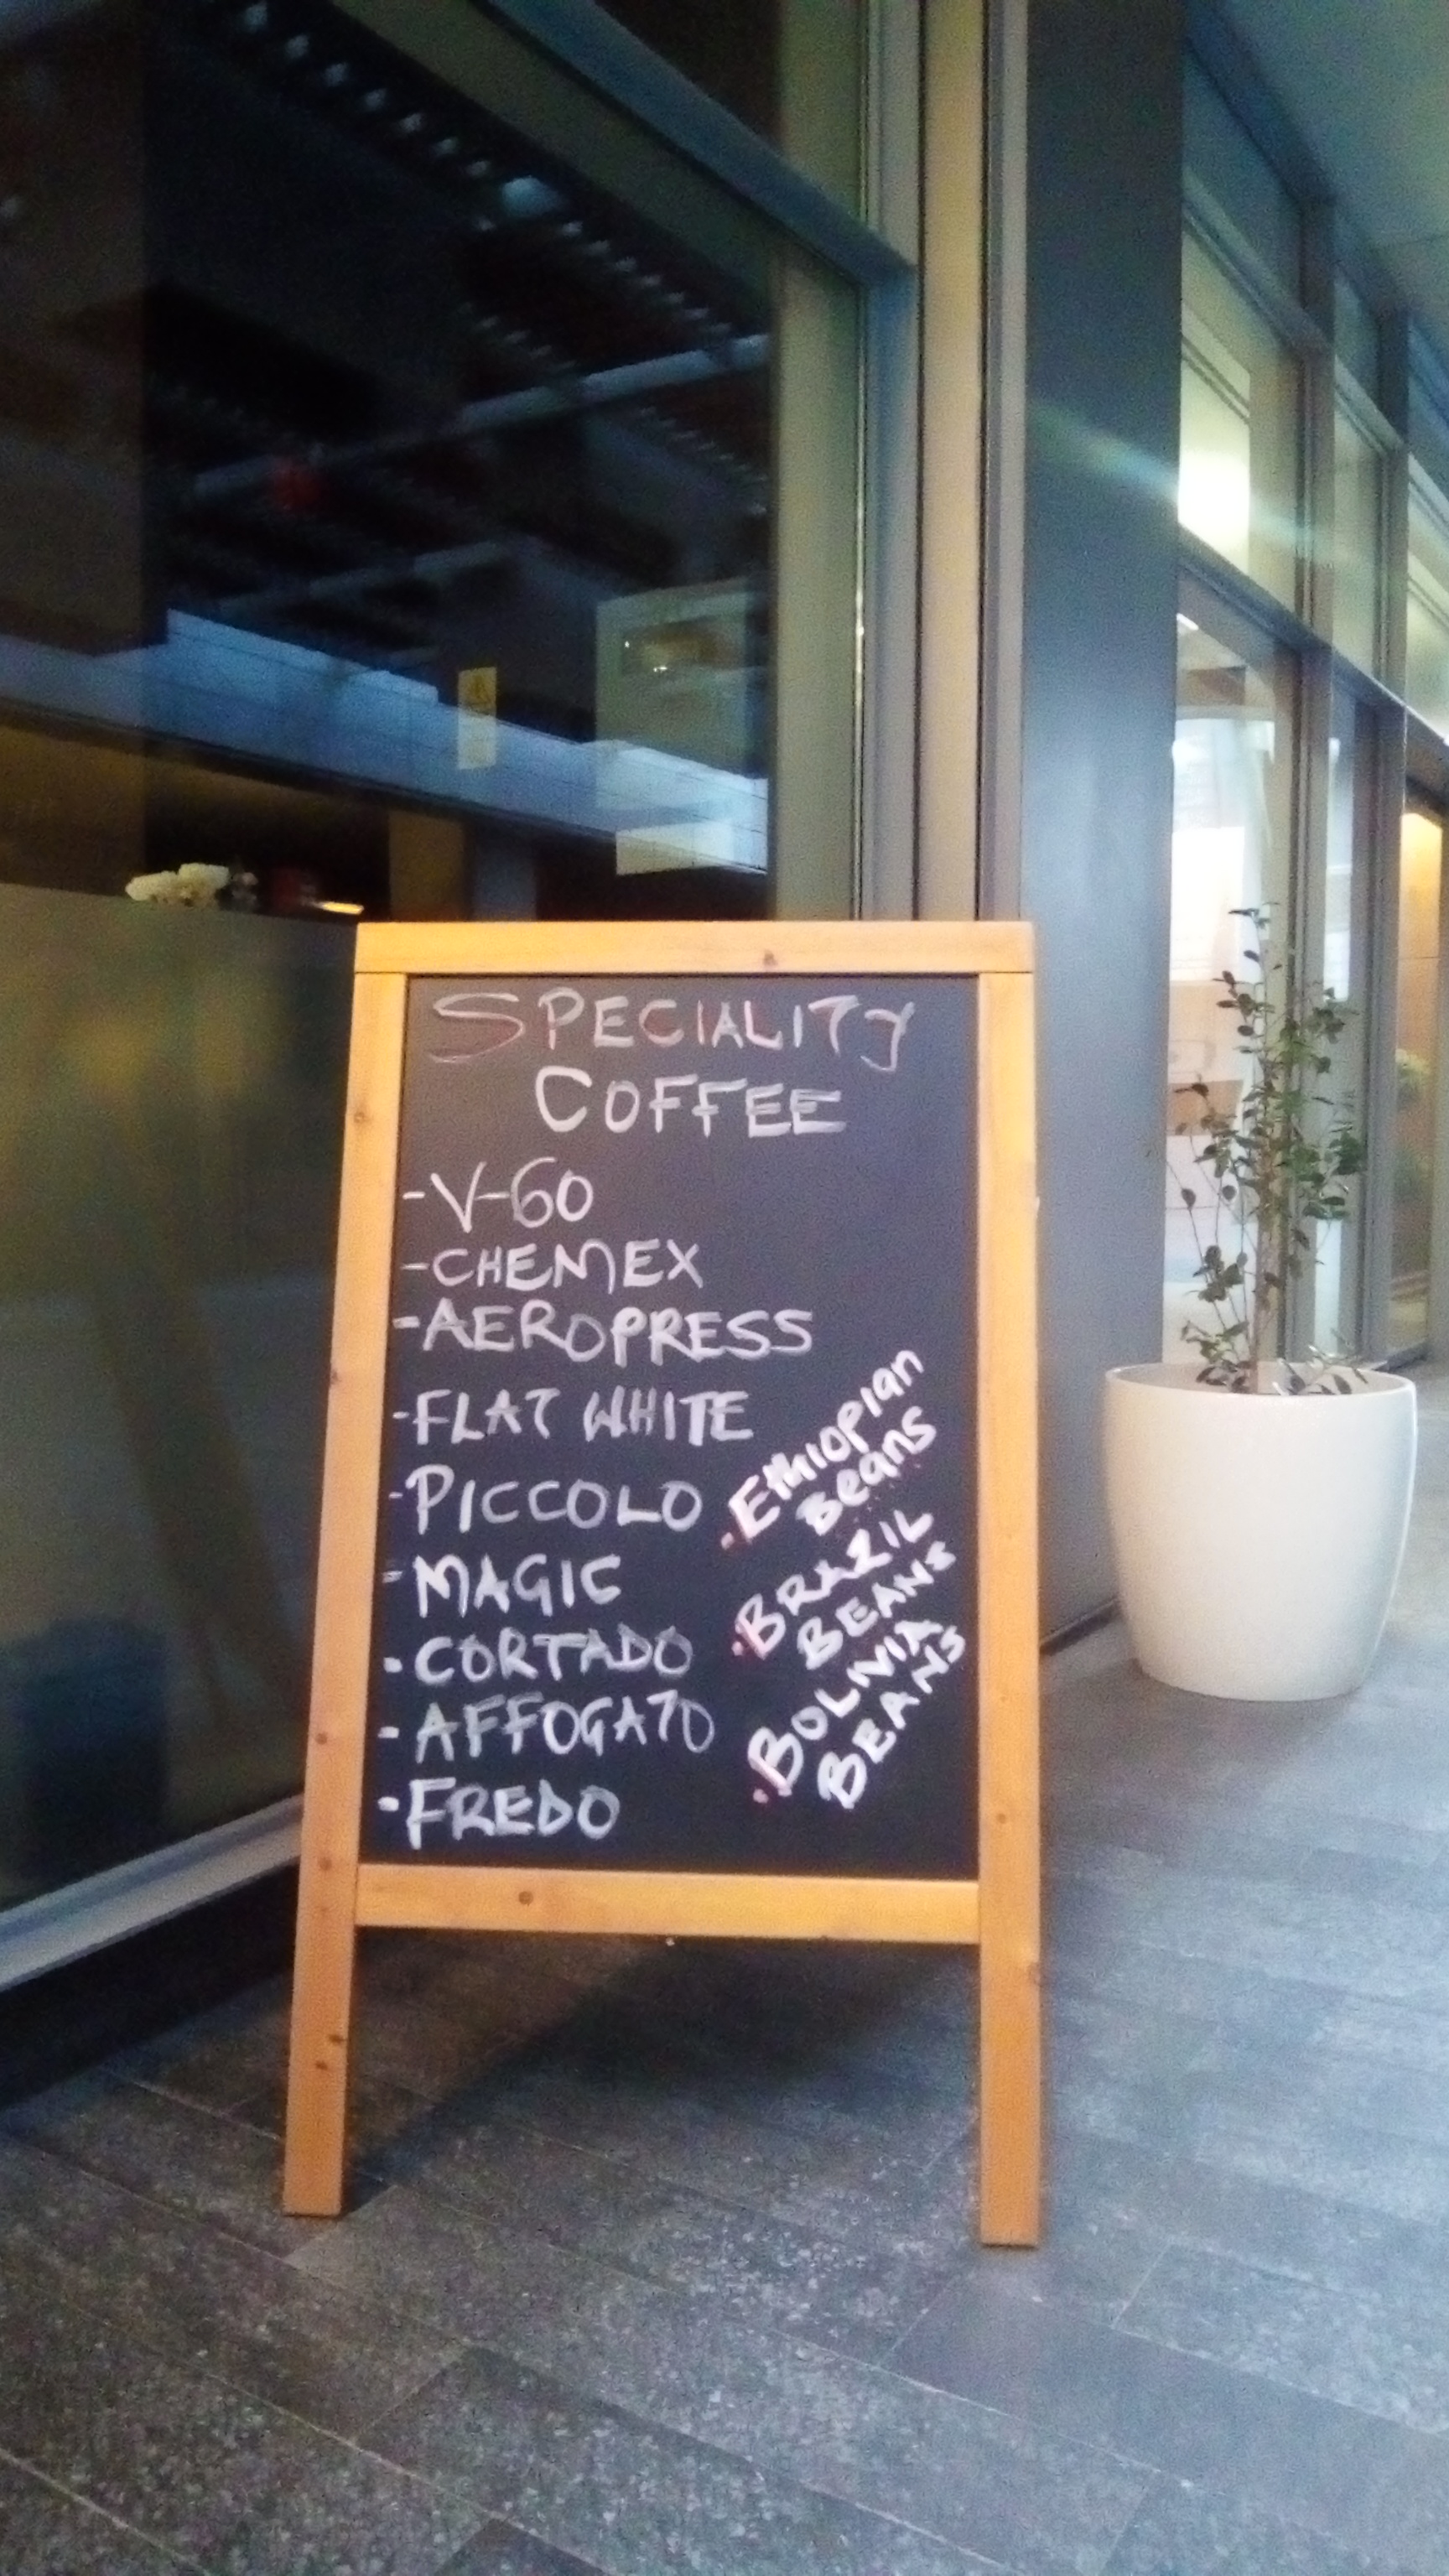 SPECIALITY
COFFEE
-V-60
-CHEMEX
-AEROPRESS
-FLAT WHITE
-PICCOLO
-MAGIC
-CORTADO
-AFFOGATO
-FREDO
.Ethiopian
Beans
.BRAZIL
BEANS
.BOLIVIA
BEANS